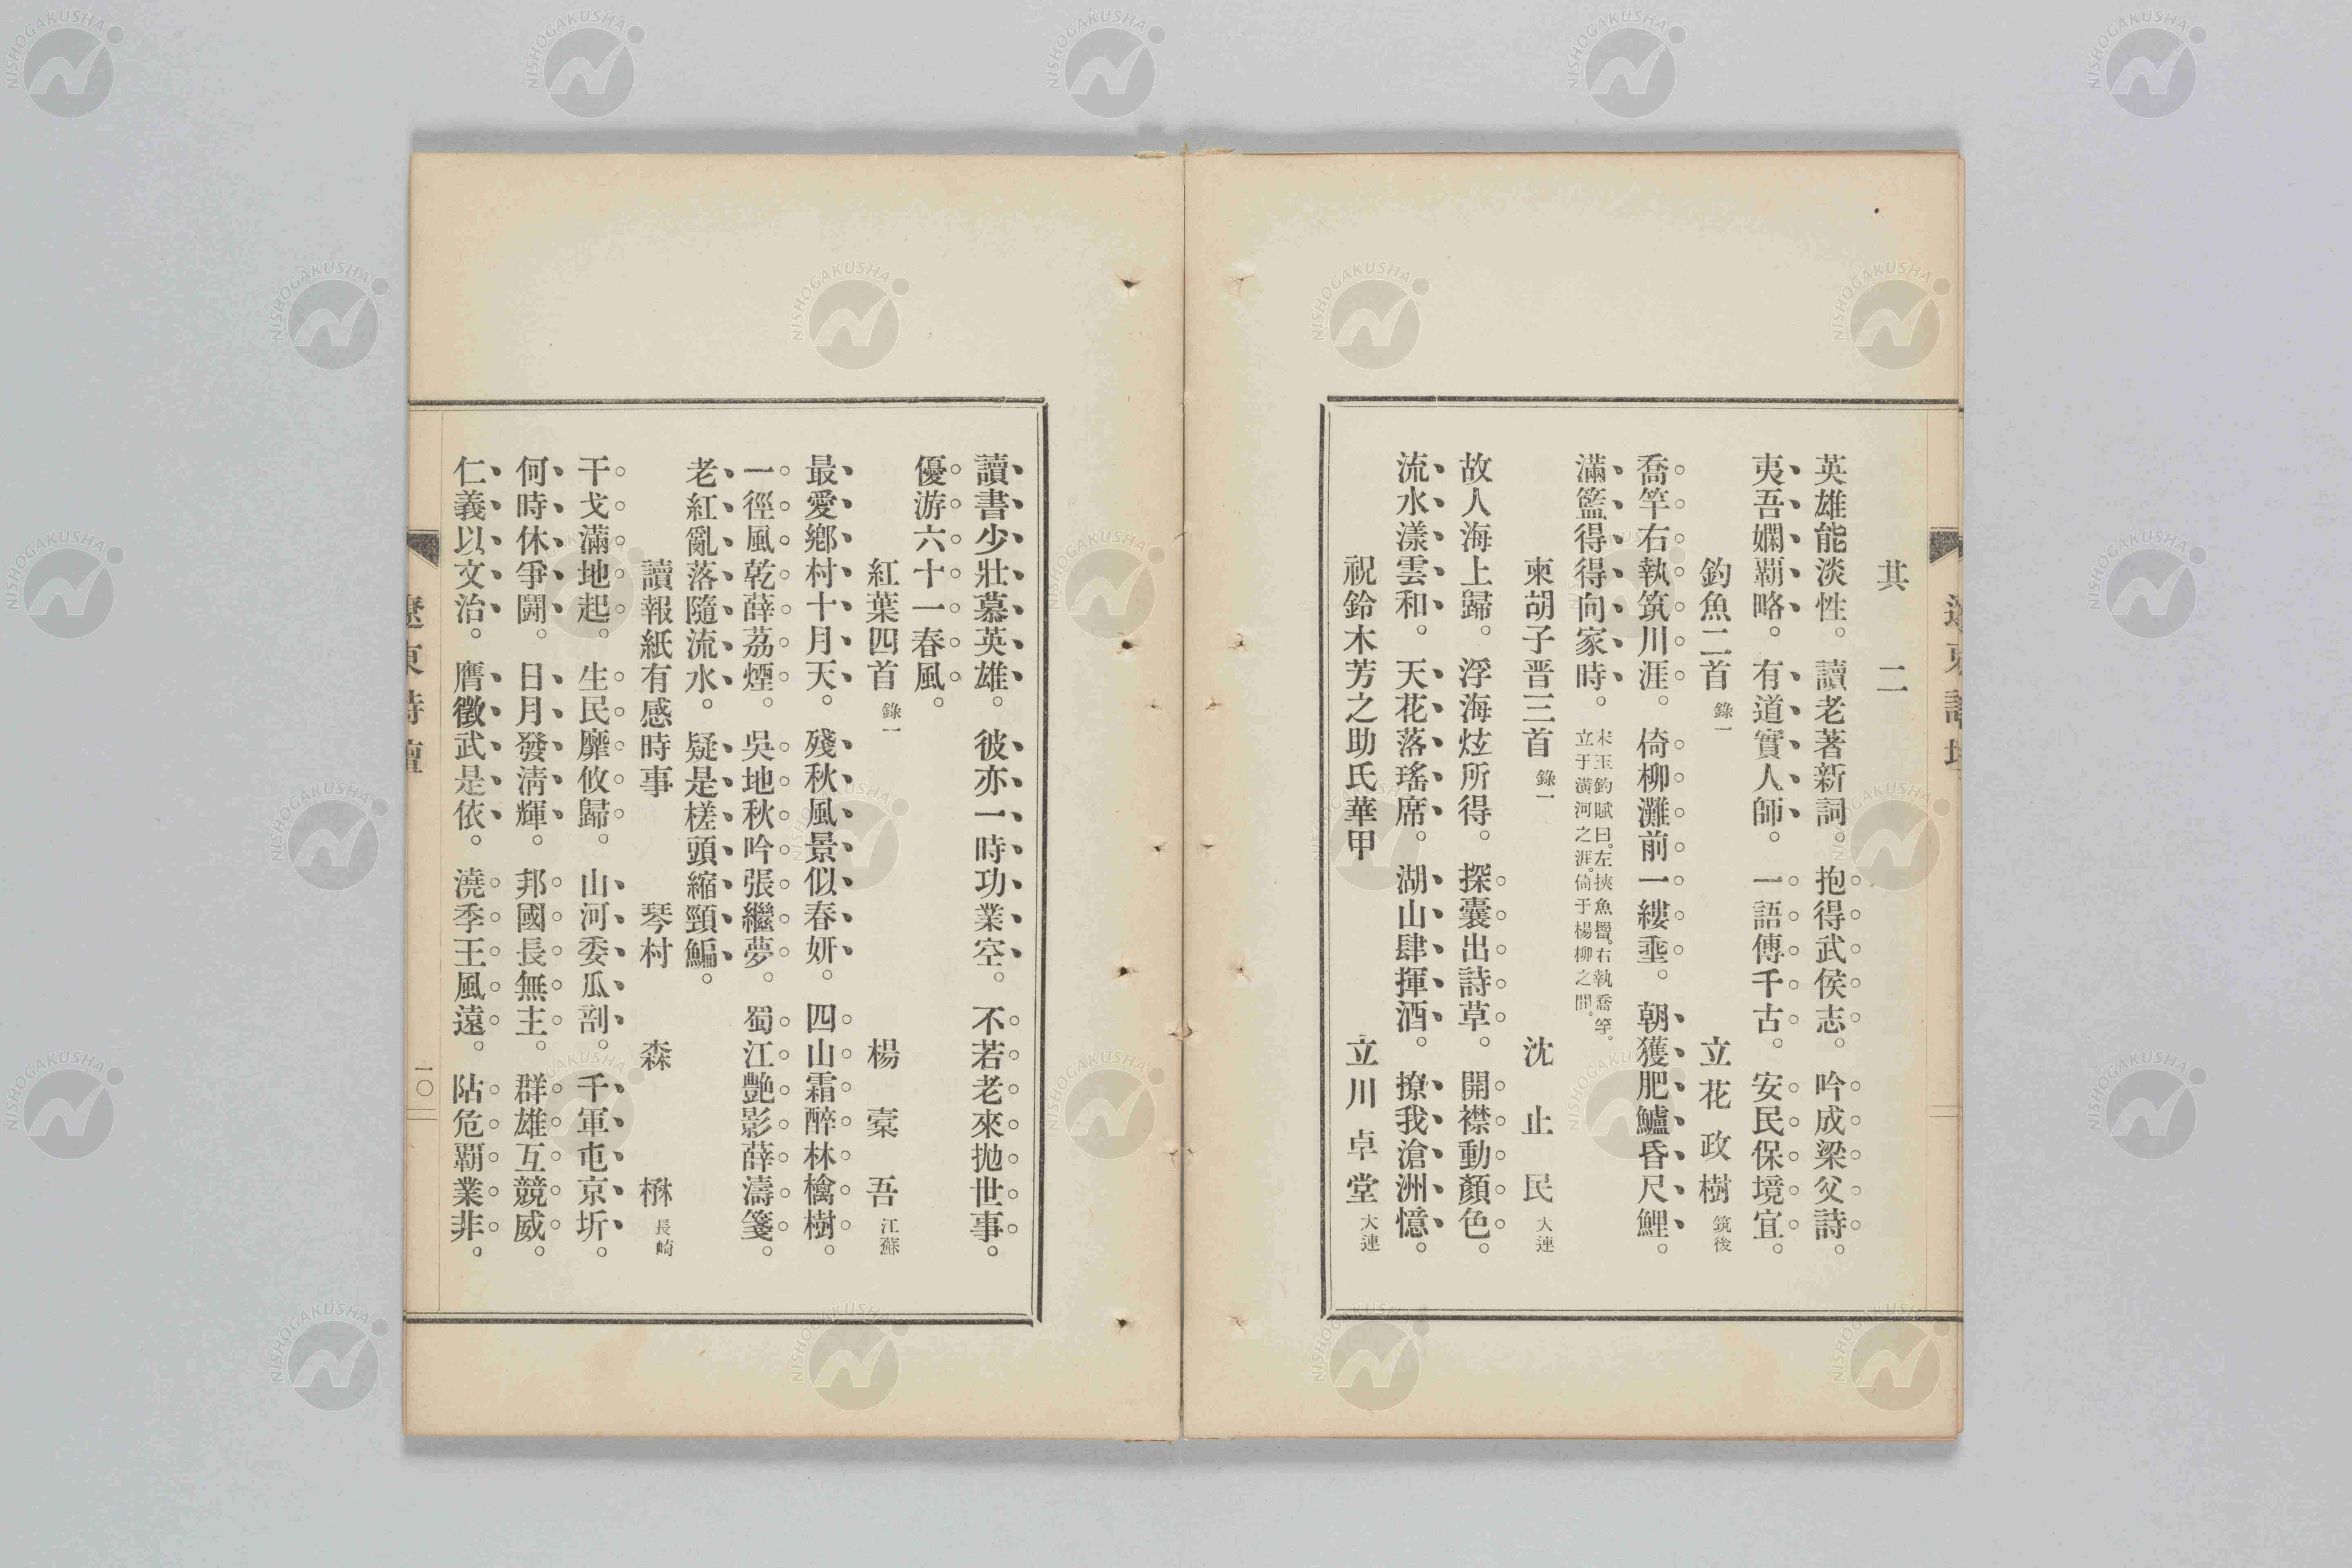 其二
英雄能淡性。讀老著新詞。抱得武侯志。吟成梁父詩。
夷吾嫻覇略。有道實人師。一語傳千古。安民保境宜。
釣魚二首 錄一 立花政樹 筑後
喬竿右執筑川涯。倚柳灘前一縷垂。朝獲肥鱸昏尺鯉。
滿籃得得向家時。宋玉釣賦曰。左挾魚罶。右執喬竿。立于潢河之涯。倚于楊柳之間。
柬胡子晋三首 錄一 沈止民 大連
故人海上歸。浮海炫所得。探囊出詩草。開襟動顏色。
流水漾雲和。天花落瑤席。湖山肆揮酒。撩我滄洲憶。
祝鈴木芳之助氏華甲 立川卓堂 大連
遼東詩壇
讀書少壯慕英雄。彼亦一時功業空。不若老來抛世事。
優游六十一春風。
紅葉四首 錄一 楊槖吾 江蘇
最愛鄉村十月天。殘秋風景似春妍。四山霜醉林檎樹。
一徑風乾薛荔煙。吳地秋吟張繼夢。蜀江艷影薛濤箋。
老紅亂落隨流水。疑是槎頭縮頸鯿。
讀報紙有感時事 琴村 森 楙 長崎
干戈滿地起。生民靡攸歸。山河委瓜剖。千軍屯京圻。
何時休爭鬪。日月發淸輝。邦國長無主。群雄互競威。
仁義以文治。膺徵武是依。澆季王風遠。阽危覇業非。
遼東詩壇
一〇
NISHOGAKUSHA